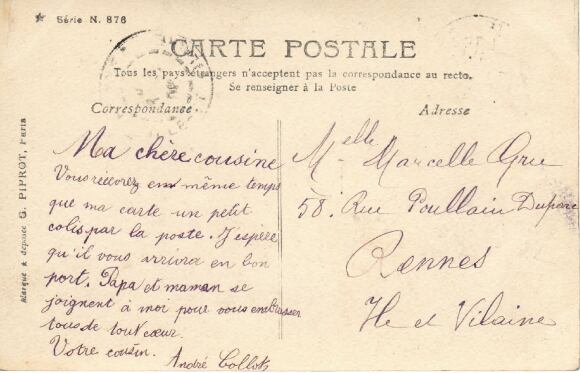 ★ Série N. 876
CARTE POSTALE
Tous les pays étrangers n'acceptent pas la correspondance au recto.
Se renseigner à la Poste
Correspondance.
Adresse
Marque ★ déposée G. PIPROT, Paris
Ma chère cousine
Vous recevrez en même temps
que ma carte un petit
colis par la poste. J'espère
qu'il vous arrivera en bon
port. Papa et maman se
joignent à moi pour vous embrasser
tous de tout cœur.
Votre cousin.
André
Melle Marcelle Gru
58. Rue Poullain Duparc
Rennes
Ile et Vilaine